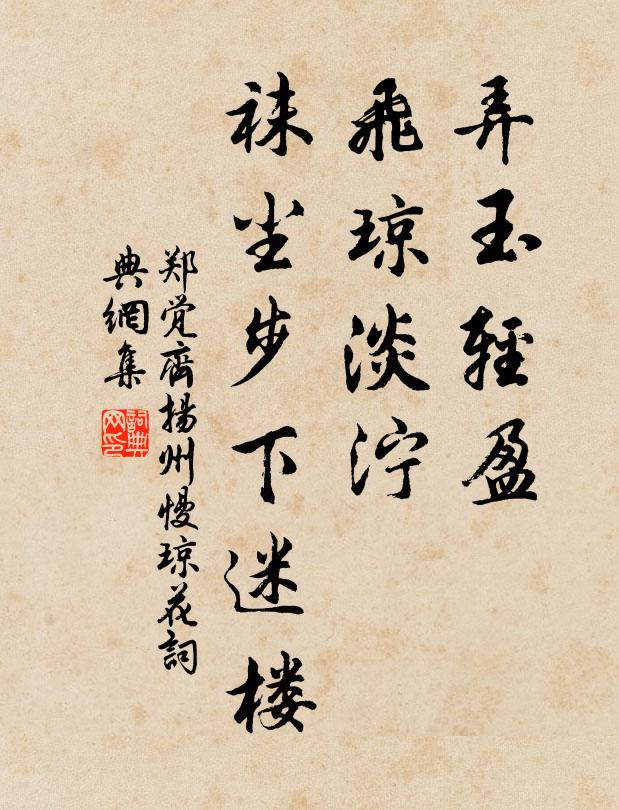 弄玉輕盈
飛琼淡泞
袜尘步下迷楼
郑觉齋揚州慢琼花詞
典網集
詞典
网印